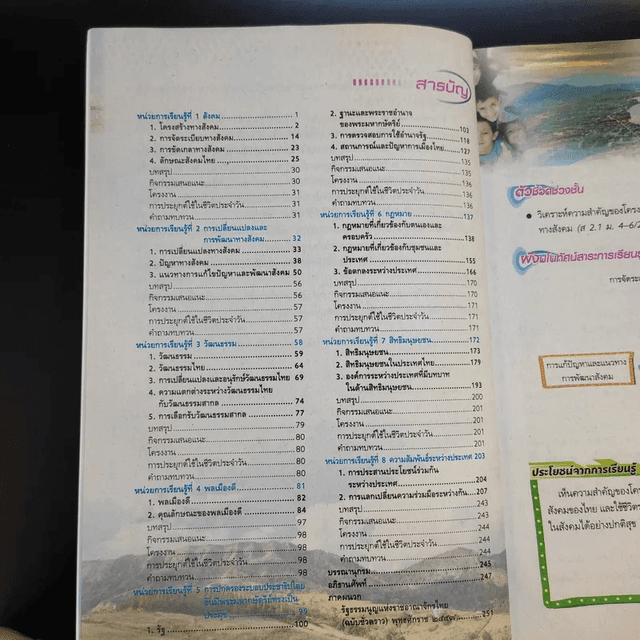 สารบัญ
หน่วยการเรียนรู้ที่ 1 สังคม 1
1. โครงสร้างทางสังคม 2
2. การจัดระเบียบทางสังคม 14
3. การขัดเกลาทางสังคม 23
4. ลักษณะสังคมไทย 25
บทสรุป 30
กิจกรรมเสนอแนะ 30
โครงงาน 31
การประยุกต์ใช้ในชีวิตประจำวัน 31
คำถามทบทวน 31
หน่วยการเรียนรู้ที่ 2 การเปลี่ยนแปลงและ
การพัฒนาทางสังคม 32
1. การเปลี่ยนแปลงทางสังคม 33
2. ปัญหาทางสังคม 38
3. แนวทางการแก้ไขปัญหาและพัฒนาสังคม 50
บทสรุป 56
กิจกรรมเสนอแนะ 56
โครงงาน 57
การประยุกต์ใช้ในชีวิตประจำวัน 57
คำถามทบทวน 57
หน่วยการเรียนรู้ที่ 3 วัฒนธรรม 58
1. วัฒนธรรม 59
2. วัฒนธรรมไทย 64
3. การเปลี่ยนแปลงและอนุรักษ์วัฒนธรรมไทย 69
4. ความแตกต่างระหว่างวัฒนธรรมไทย
กับวัฒนธรรมสากล 74
5. การเลือกรับวัฒนธรรมสากล 77
บทสรุป 79
กิจกรรมเสนอแนะ 80
โครงงาน 80
การประยุกต์ใช้ในชีวิตประจำวัน 80
คำถามทบทวน 80
หน่วยการเรียนรู้ที่ 4 พลเมืองดี 81
1. พลเมืองดี 82
2. คุณลักษณะของพลเมืองดี 84
บทสรุป 97
กิจกรรมเสนอแนะ 98
โครงงาน 98
การประยุกต์ใช้ในชีวิตประจำวัน 98
คำถามทบทวน 98
หน่วยการเรียนรู้ที่ 5 การปกครองระบอบประชาธิปไตย
อันมีพระมหากษัตริย์ทรงเป็น
ประมุข 99
1. รัฐ 100
2. ฐานะและพระราชอำนาจ
ของพระมหากษัตริย์ 103
3. การตรวจสอบการใช้อำนาจรัฐ 118
4. สถานการณ์และปัญหาการเมืองไทย 127
บทสรุป 135
กิจกรรมเสนอแนะ 135
โครงงาน 136
การประยุกต์ใช้ในชีวิตประจำวัน 136
คำถามทบทวน 136
หน่วยการเรียนรู้ที่ 6 กฎหมาย 137
1. กฎหมายที่เกี่ยวข้องกับตนเองและ
ครอบครัว 138
2. กฎหมายที่เกี่ยวข้องกับชุมชนและ
ประเทศ 155
3. ข้อตกลงระหว่างประเทศ 166
บทสรุป 170
กิจกรรมเสนอแนะ 170
โครงงาน 171
การประยุกต์ใช้ในชีวิตประจำวัน 171
คำถามทบทวน 171
หน่วยการเรียนรู้ที่ 7 สิทธิมนุษยชน 172
1. สิทธิมนุษยชน 173
2. สิทธิมนุษยชนในประเทศไทย 179
3. องค์การระหว่างประเทศที่มีบทบาท
ในด้านสิทธิมนุษยชน 193
บทสรุป 200
กิจกรรมเสนอแนะ 201
โครงงาน 201
การประยุกต์ใช้ในชีวิตประจำวัน 201
คำถามทบทวน 201
หน่วยการเรียนรู้ที่ 8 ความสัมพันธ์ระหว่างประเทศ 203
1. การประสานประโยชน์ร่วมกัน
ระหว่างประเทศ 204
2. การแลกเปลี่ยนความร่วมมือระหว่างกัน 207
บทสรุป 243
กิจกรรมเสนอแนะ 243
โครงงาน 244
การประยุกต์ใช้ในชีวิตประจำวัน 244
คำถามทบทวน 244
บรรณานุกรม 245
อภิธานศัพท์ 247
ภาคผนวก
รัฐธรรมนูญแห่งราชอาณาจักรไทย
(ฉบับชั่วคราว) พุทธศักราช ๒๕๕๗ 251
ตัวชี้วัดช่วงชั้น
วิเคราะห์ความสำคัญของโครง
ทางสังคม (ส 2.1 ม. 4-6/2
ผังมโนทัศน์สาระการเรียนรู้
การจัดระ
การแก้ปัญหาและแนวทาง
การพัฒนาสังคม
ประโยชน์จากการเรียนรู้
เห็นความสำคัญของโค
สังคมของไทย และใช้ชีวิต
ในสังคมได้อย่างปกติสุข